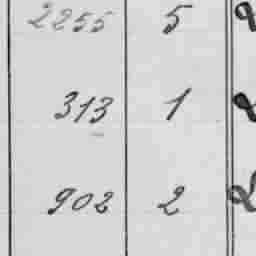 2255 5
313 1
902 2